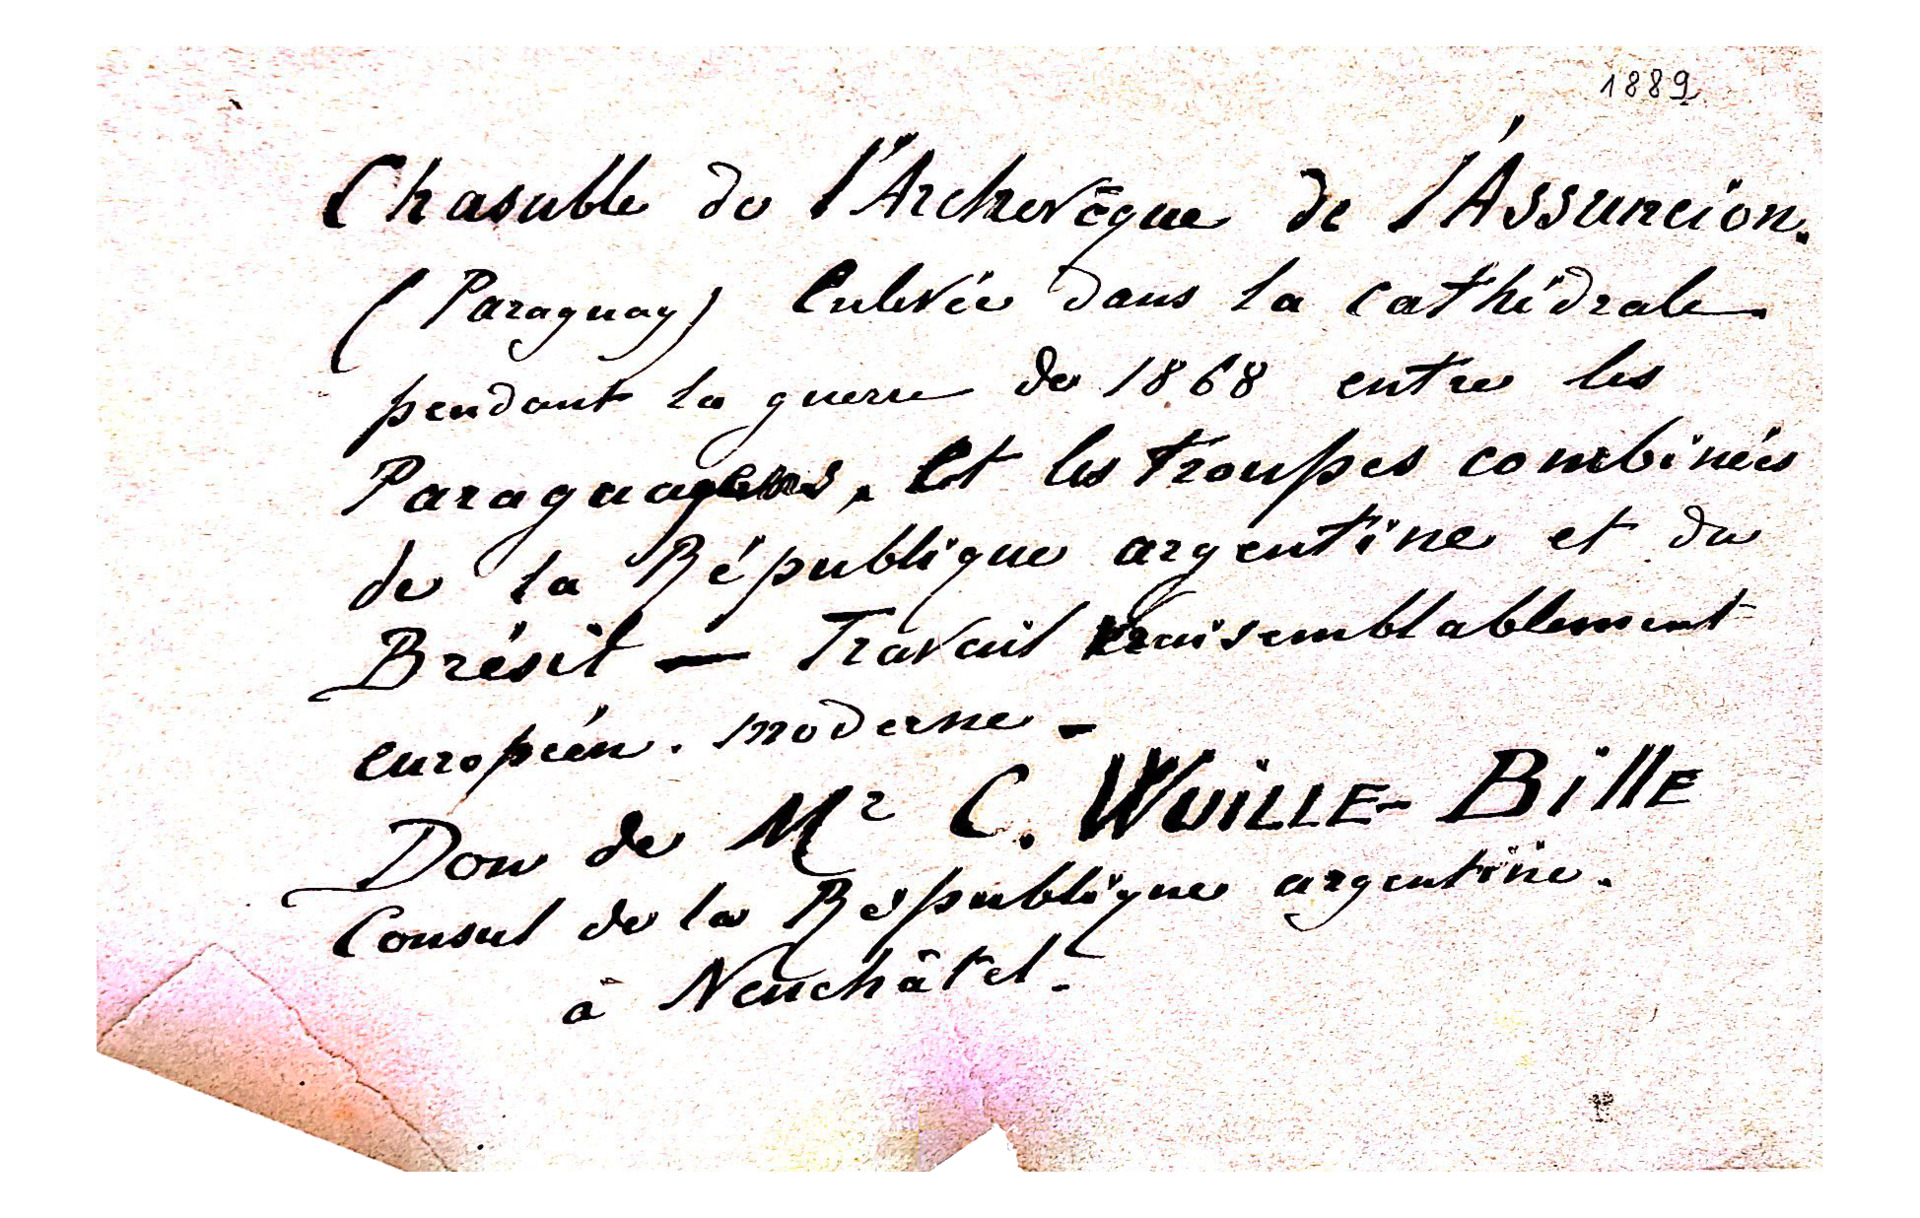 1889
Chasuble de l'Archevêque de l'Assuncion.
(Paraguay) Enlevée dans la cathédrale
pendant la guerre de 1868 entre les
Paraguayens, et les troupes combinées
de la République argentine et du
Brésil — Travail vraisemblablement
européen. moderne -
Don de Mr C. WUILLE-BillE
Consul de la République argentine.
à Neuchâtel.